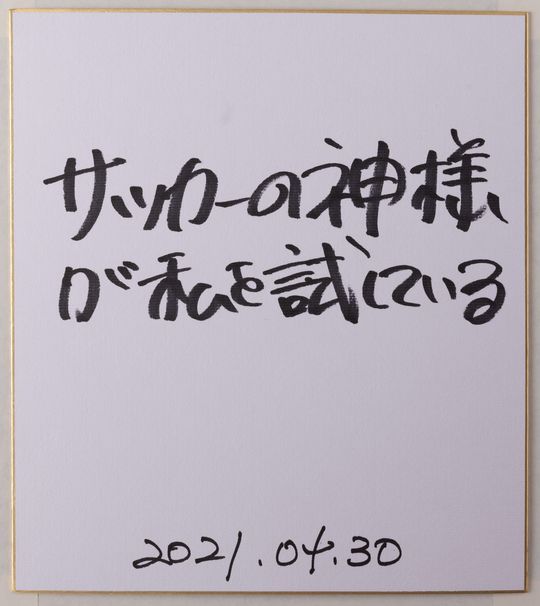 サッカーの神様
が私を試している
2021.04.30